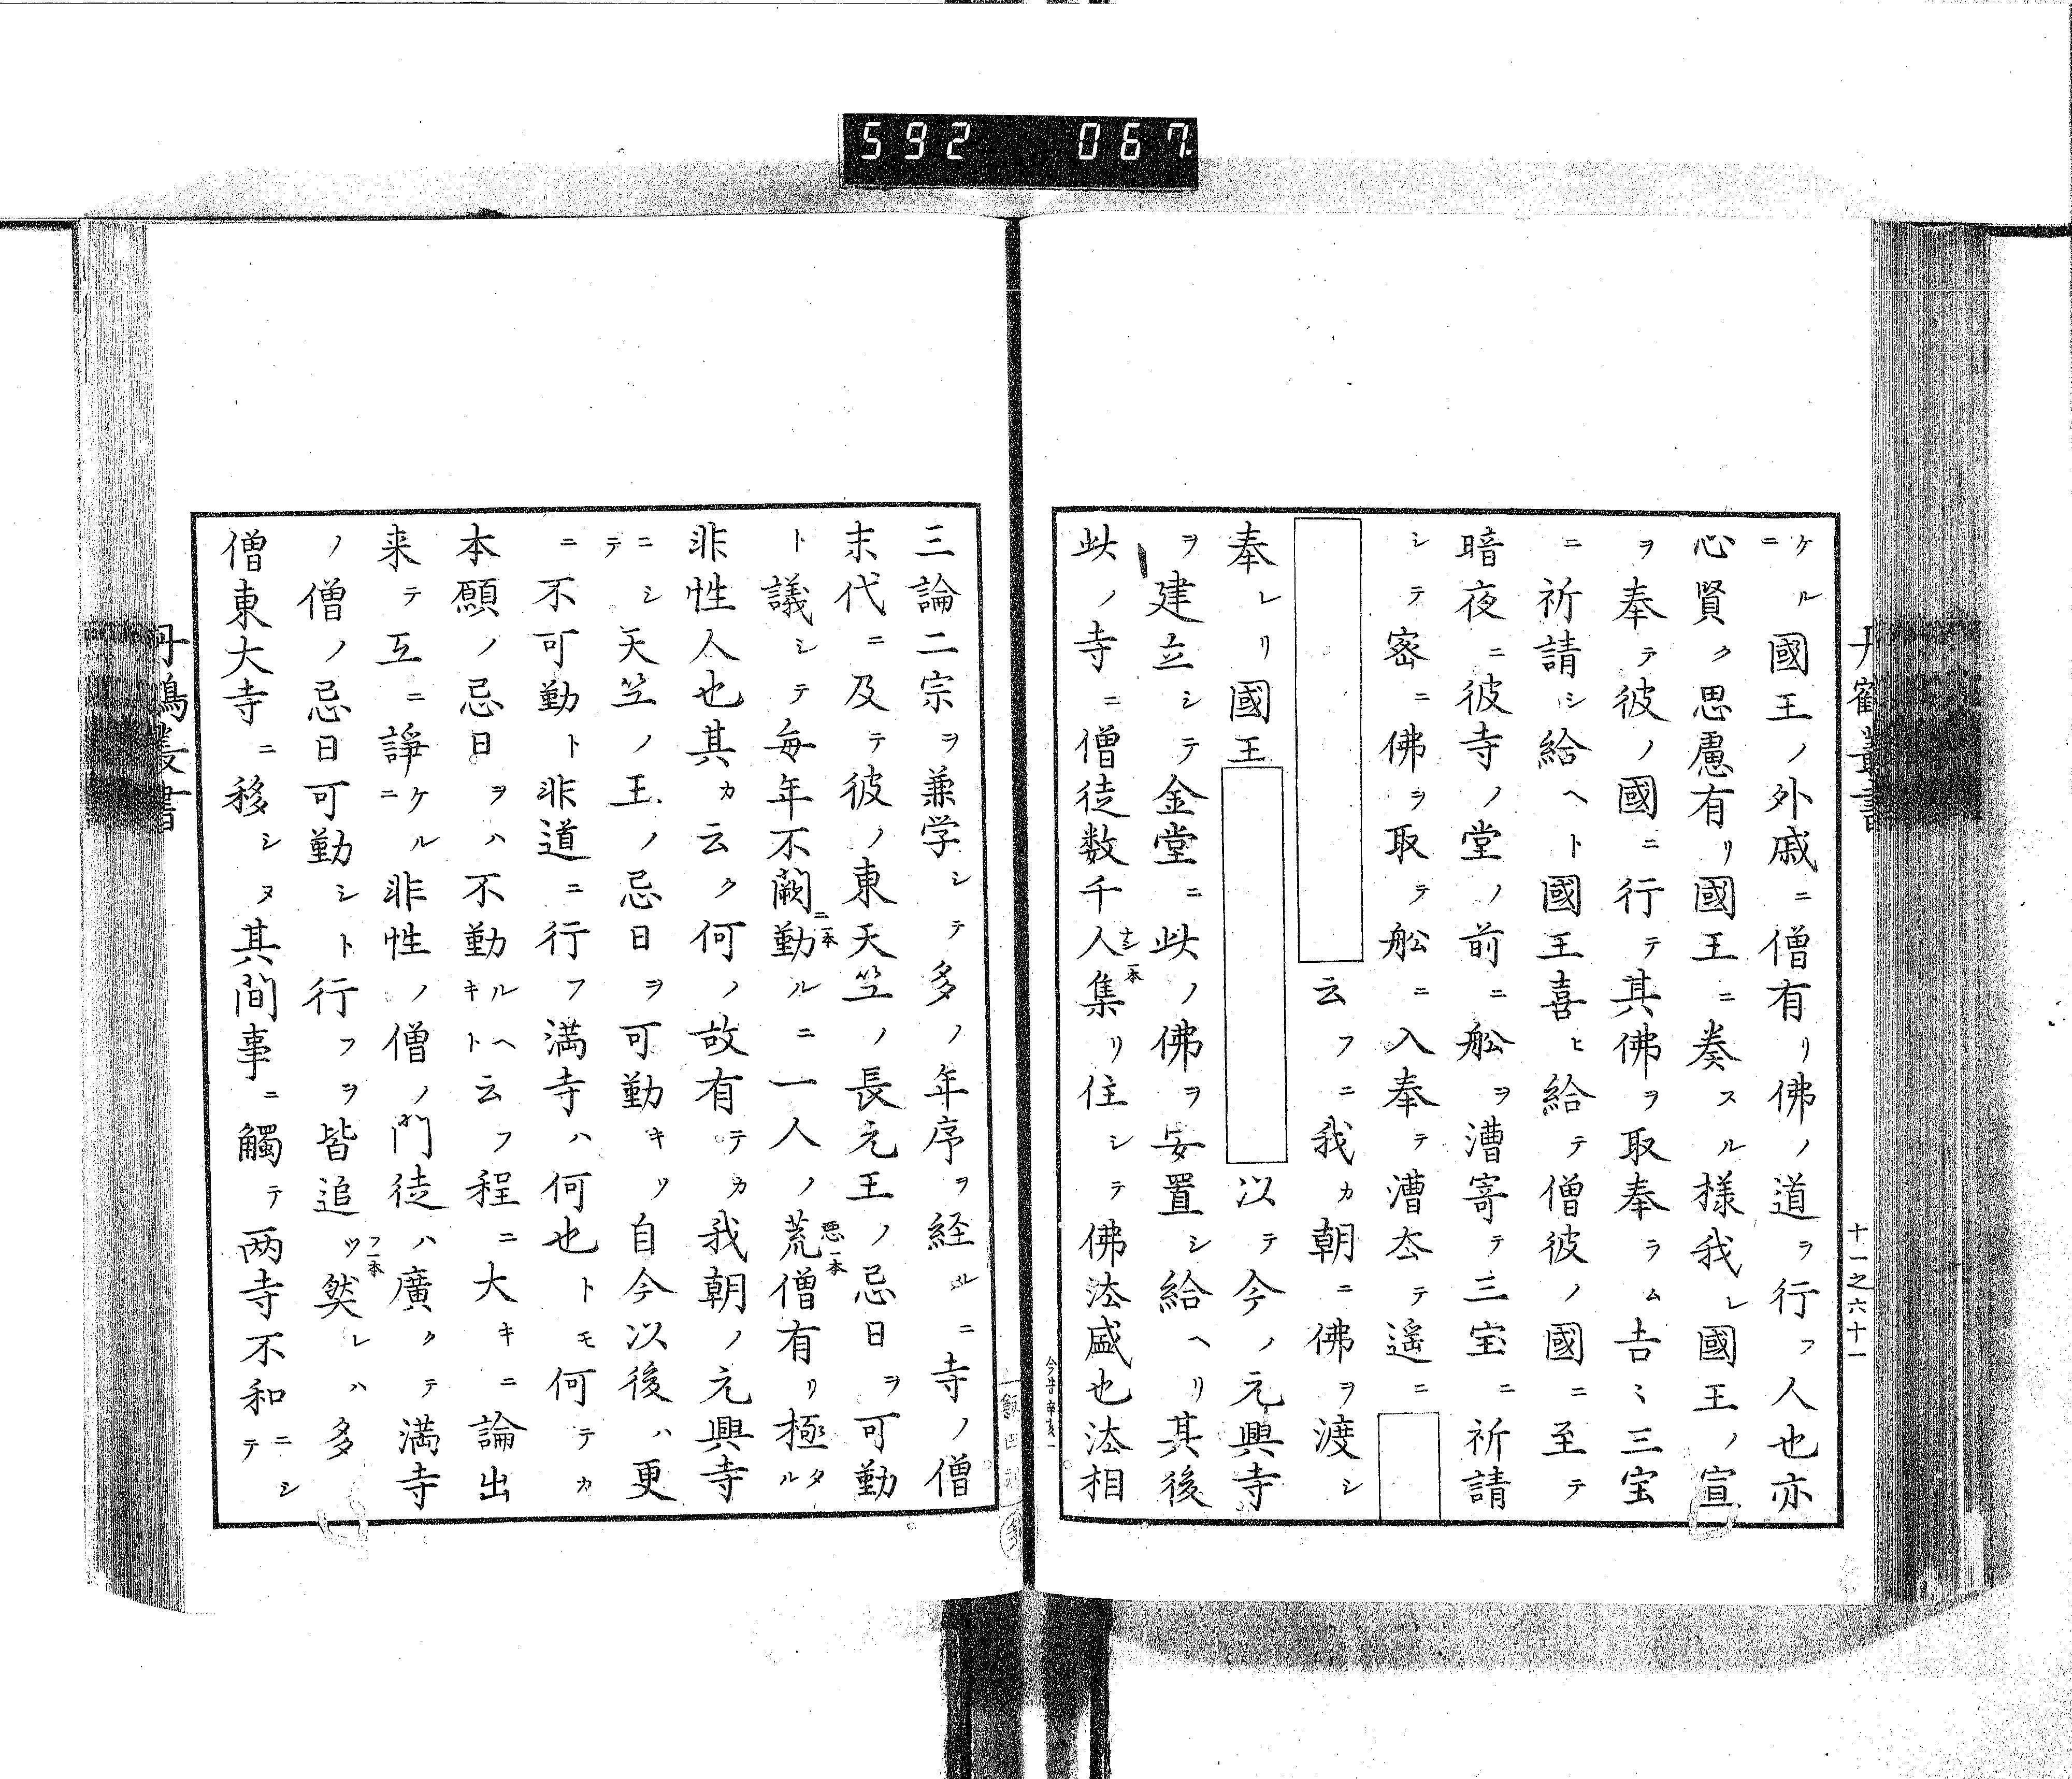 592 067
十一之六十一
ケルニ國王ノ外戚ニ僧有リ佛ノ道ヲ行フ人也亦
心賢ク思慮有リ國王ニ奏スル様我レ國王ノ宣
ヲ奉テ彼ノ國ニ行テ其佛ヲ取奉ラム吉ミ三宝
ニ祈請シ給ヘト國王喜ヒ給テ僧彼ノ國ニ至テ
暗夜ニ彼寺ノ堂ノ前ニ舩ヲ漕寄テ三宝ニ祈請
シテ宻ニ佛ヲ取テ舩ニ入奉テ漕去テ遥ニ
云フニ我カ朝ニ佛ヲ渡シ
奉レリ國王以テ今ノ元興寺
ヲ建立シテ金堂ニ此ノ佛ヲ安置シ給ヘリ其後
此ノ寺ニ僧徒数千人ナシ一本集リ住シテ佛法盛也法相
三論二宗ヲ兼学シテ多ノ年序ヲ経ルニ寺ノ僧
末代ニ及テ彼ノ東天竺ノ長元王ノ忌日ヲ可勤
ト議シテ毎年不闕ニ一本勤ルニ一人ノ荒悪一本僧有リ極タル
非性人也其カ云ク何ノ故有テカ我朝ノ元興寺
ニシテ天竺ノ王ノ忌日ヲ可勤キソ自今以後ハ更
ニ不可勤ト非道ニ行フ満寺ハ何也トモ何テカ
本願ノ忌日ヲハ不勤ルヘキト云フ程ニ大キニ論出
来テ互ニ諍ケルニ非性ノ僧ノ門徒ハ廣クテ満寺
ノ僧ノ忌日可勤シト行フヲ皆追ツフ一本然レハ多
僧東大寺ニ移シヌ其間事ニ觸テ两寺不和ニシテ
丹鶴叢書